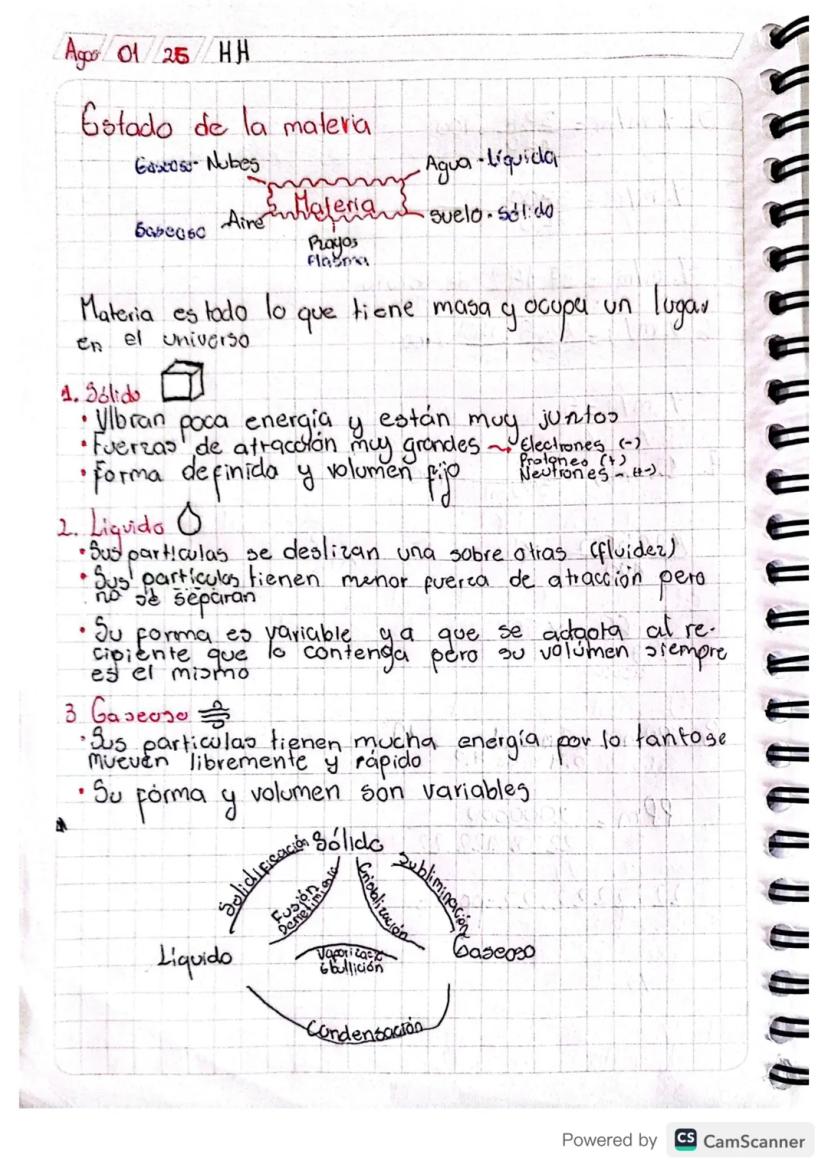 Agos 01 25 HH
Estado de la materia
Gaseoso - Nubes
Agua - Líquida
Materia
Gaseoso Aire
suelo - sólido
Rayos
Plasma
Materia es todo lo que tiene masa y ocupa un lugar
en el universo
1. Sólido
• Vibran poca energía y están muy juntos
• Fuerzas de atracción muy grandes → Electrones (-)
Protones (+)
Neutrones - +-)
• forma definida y volumen fijo
2. Liquido
• Sus particulas se deslizan una sobre otras (fluidez)
• Sus particulas tienen menor fuerza de atracción pero
no se separan
• Su forma es variable ya que se adapta al re-
cipiente que lo contenga pero su volúmen siempre
es el mismo
3 Gaseoso
• Sus particulas tienen mucha energía por lo tanto se
mueven libremente y rápido
• Su forma y volumen son variables
Sólido
Solidificación
Fusión
Cristalización
Subliminación
Líquido
Gaseoso
Ebullición
Condensación
Powered by CS CamScanner